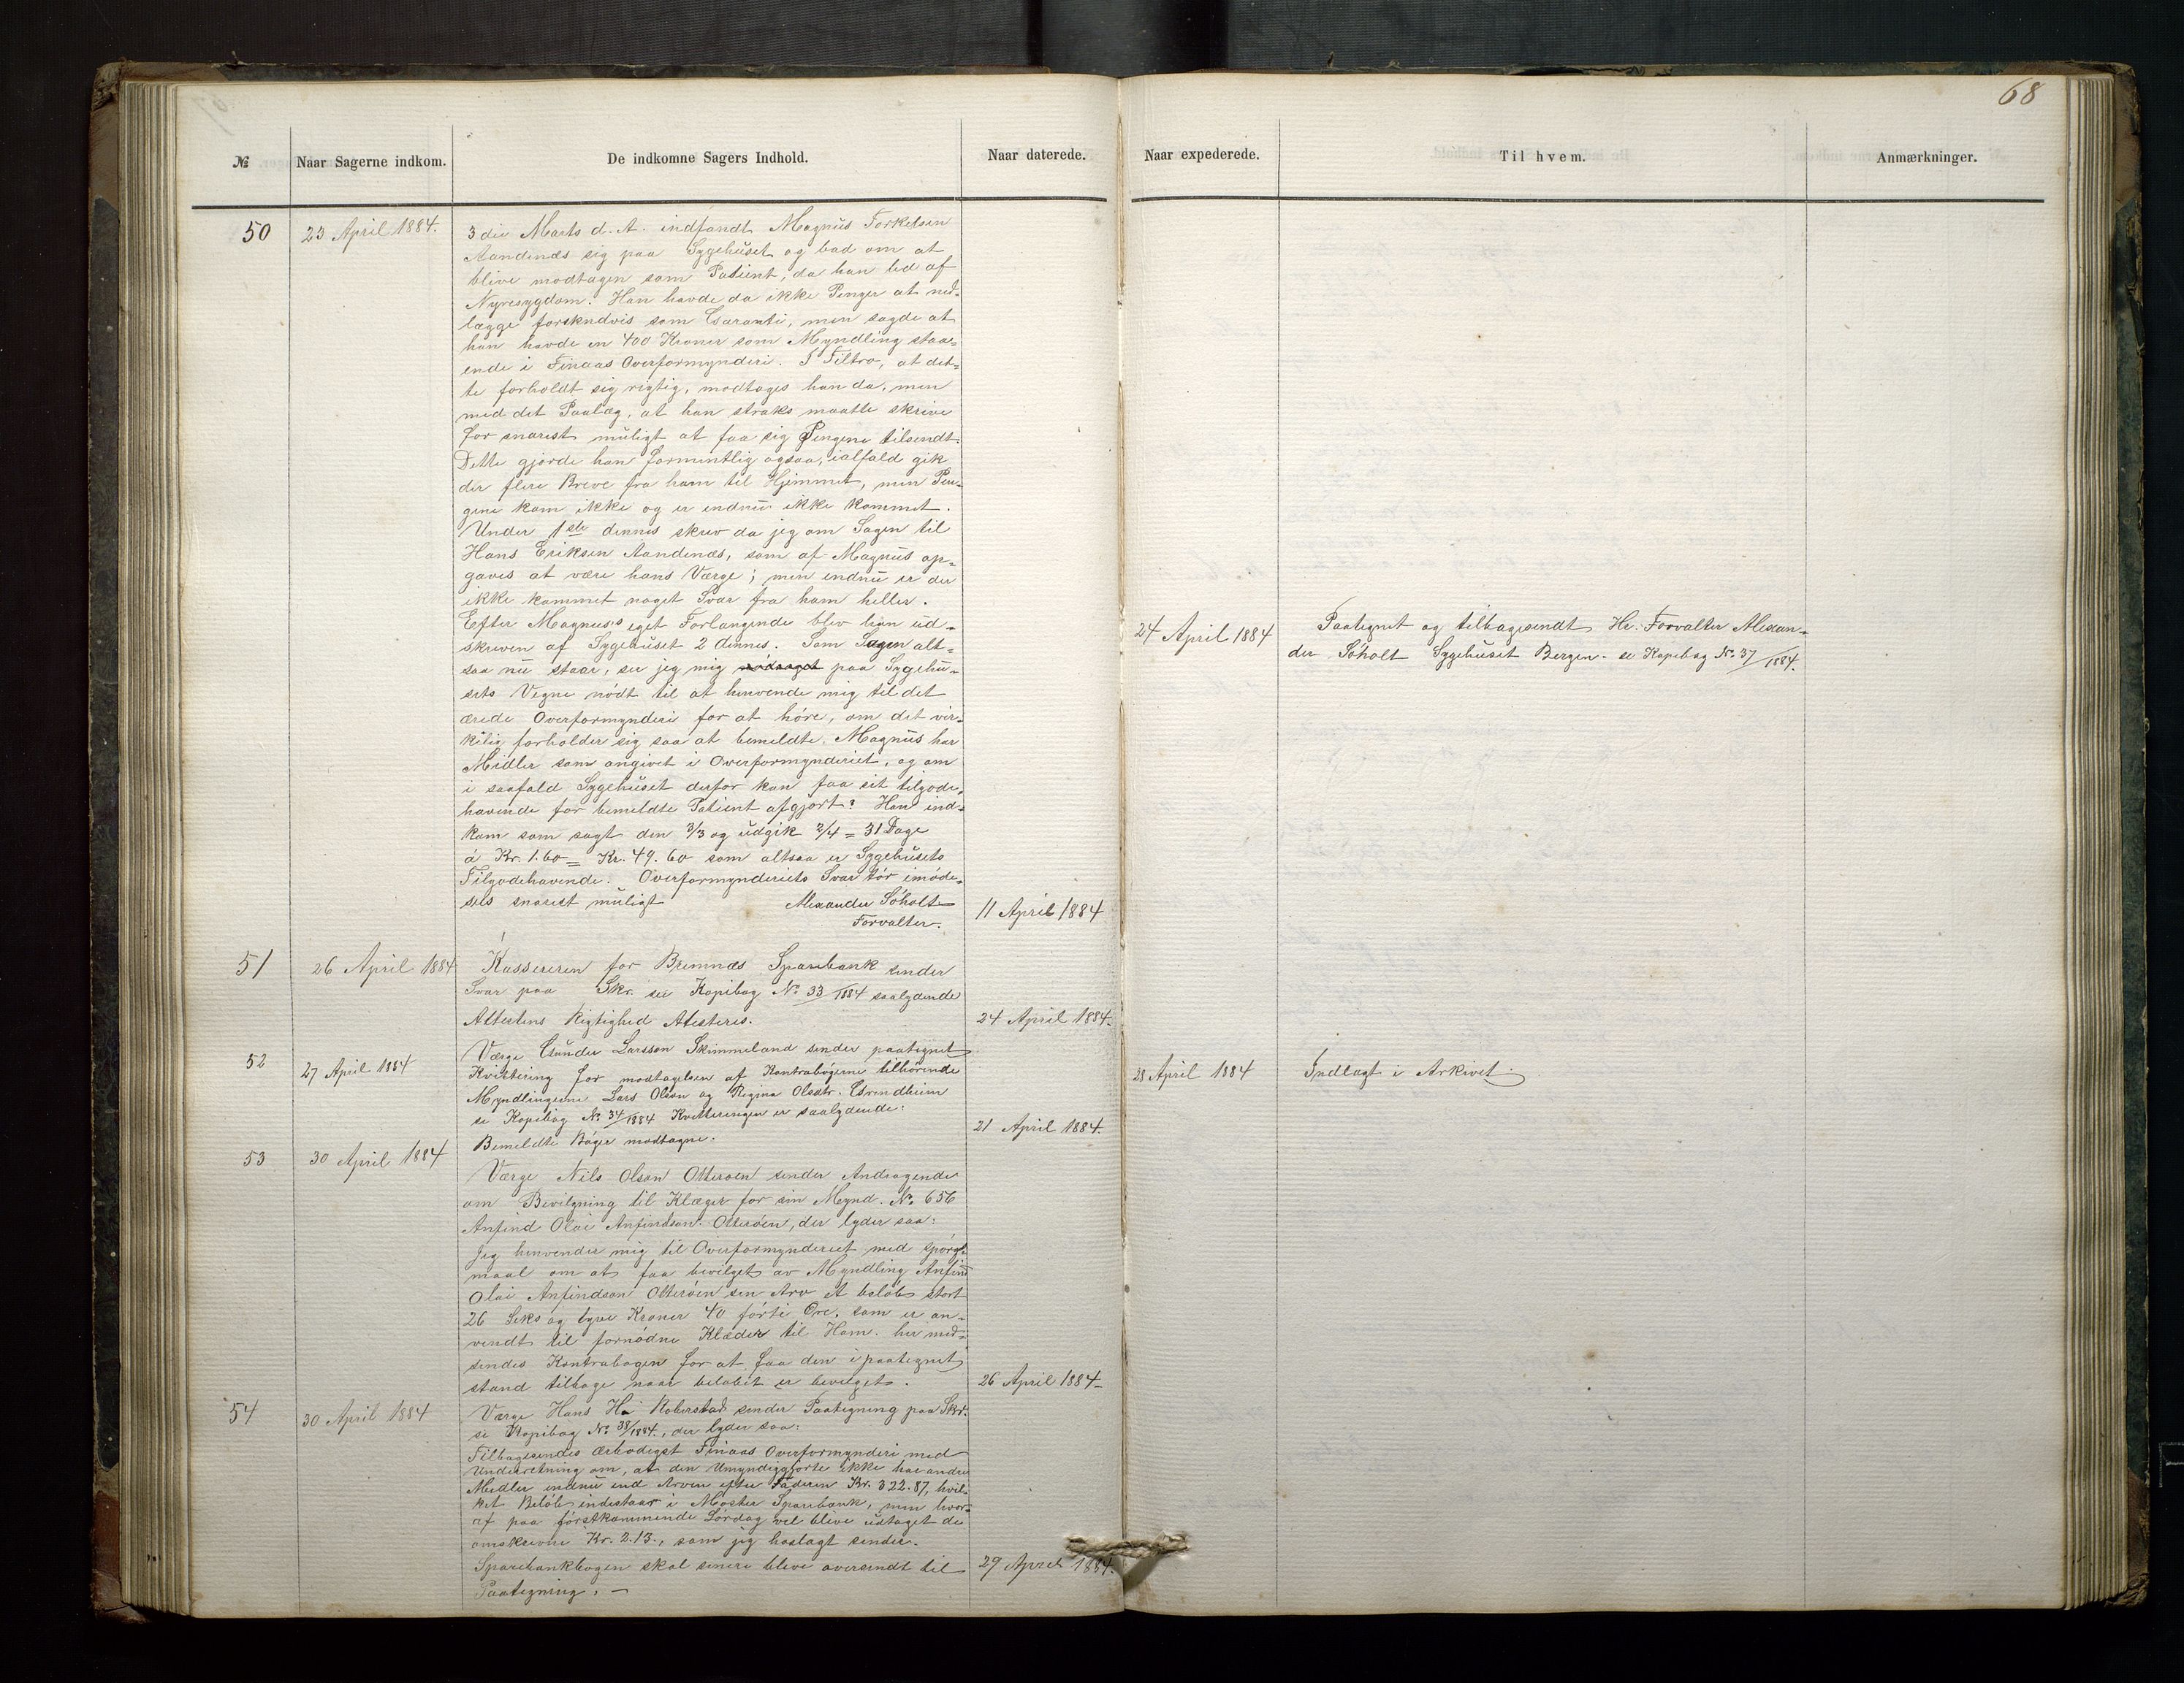 68
№ Naar Sagerne indkom. De indkomne Sagers Indhold. Naar daterede. Naar expederede. Til hvem. Anmærkninger.
50 23 April 1884. 3die Marts d. A. indfandt Magnus Torkelsen
Aandenæs sig paa Sygehuset og bad om at
blive modtagen som Patient, da han led af
Nyresygdom. Han havde da ikke Penger at ned-
lægge forskudvis som Garanti, men sagde at
han havde en 400 Kroner som Myndling staa-
ende i Finaas Overformynderi. I Tiltro, at det-
te forholdt sig rigtig, modtoges han da, men
med det Paalæg, at han straks maatte skrive
for snarest muligt at faa sig Pengene tilsendt.
Dette gjorde han formentlig ogsaa, ialfald gik
der flere Breve fra ham til Hjemmet, men Pen-
gene kom ikke og er endnu ikke kommet.
Under 1ste dennes skrev da jeg om Sagen til
Hans Eriksen Aandenæs, som af Magnus op-
gaves at være hans Værge; men endnu er der
ikke kommet noget Svar fra ham heller.
Efter Magnus's eget Forlangende blev han ud-
skreven af Sygehuset 2 dennes. Som Sagen alt-
saa nu staar, ser jeg mig nødsaget paa Sygehu-
sets Vegne nødt til at henvende mig til det
ærede Overformynderi for at høre, om det vir-
kelig forholder sig saa at bemeldte Magnus har
Midler som angivet i Overformynderiet, og om
i saafald Sygehuset derfor kan faa sit tilgode-
havende for bemeldte Patient afgjort? Han ind-
kom som sagt den 3/3 og udgik 2/4 = 31 Dage
á Kr. 1.60 = Kr. 49.60 som altsaa er Sygehusets
Tilgodehavende. Overformynderiets Svar tør imøde-
sees snarest muligt Alexander Søholt
Forvalter. 11 April 1884
24 April 1884 Paategnet og tilbagesendt Hr. Forvalter Alexan-
der Søholt Sygehuset Bergen. se Kopibog No. 37/1884.
51 26 April 1884 Kassereren for Bremnæs Sparebank sender
Svar paa Skr. se Kopibog No. 33/1884 saalydende
Attestens Rigtighed Atesteres. 24 April 1884.
52 27 April 1884 Værge Gunder Larsson Skimmeland sender paategnet
Kvittering for modtagelsen af Kontrabøgerne tilhørende
Myndlingerne Lars Olson og Regina Olsdtr. Grendheim
se Kopibog No. 34/1884 Kvitteringen er saalydende:
Bemeldte Bøger modtagne. 21 April 1884.
28 April 1884 Indlagt i Arkivet.
53 30 April 1884 Værge Nils Olson Otterøen sender Andragende
om Bevilgning til Klæger for sin Mynd. No. 656
Anfind Olai Anfindson Otterøen, der lyder saa:
Jeg henvender mig til Overformynderiet med spørgs-
maal om at faa bevilget av Myndling Anfind
Olai Anfindson Otterøen sin Arv et beløb stort
26 Seks og tyve Kroner 40 førti Øre, som er an-
vendt til fornødne Klæder til Ham. her med-
sendes Kontrabogen for at faa den i paategnet
stand tilbage naar beløbet er bevilget. 26 April 1884
54 30 April 1884 Værge Hans H. Roberstad sender Paategning paa Skr.
se Kopibog No. 38/1884., der lyder saa:
Tilbagesendes ærbødigst Finaas Overformynderi med
Underretning om, at den Umyndiggjorte ikke har andre
Midler endnu end Arven efter Faderen Kr. 322.87, hvil-
ket Beløb indestaar i Moster Sparebank, men hvor-
af paa førstkommende Lørdag vel blive udtaget de
omskrevne Kr. 2.13., som jeg hoslagt sender.
Sparebankbogen skal senere blive oversendt til
Paategning. — 29 April 1884.